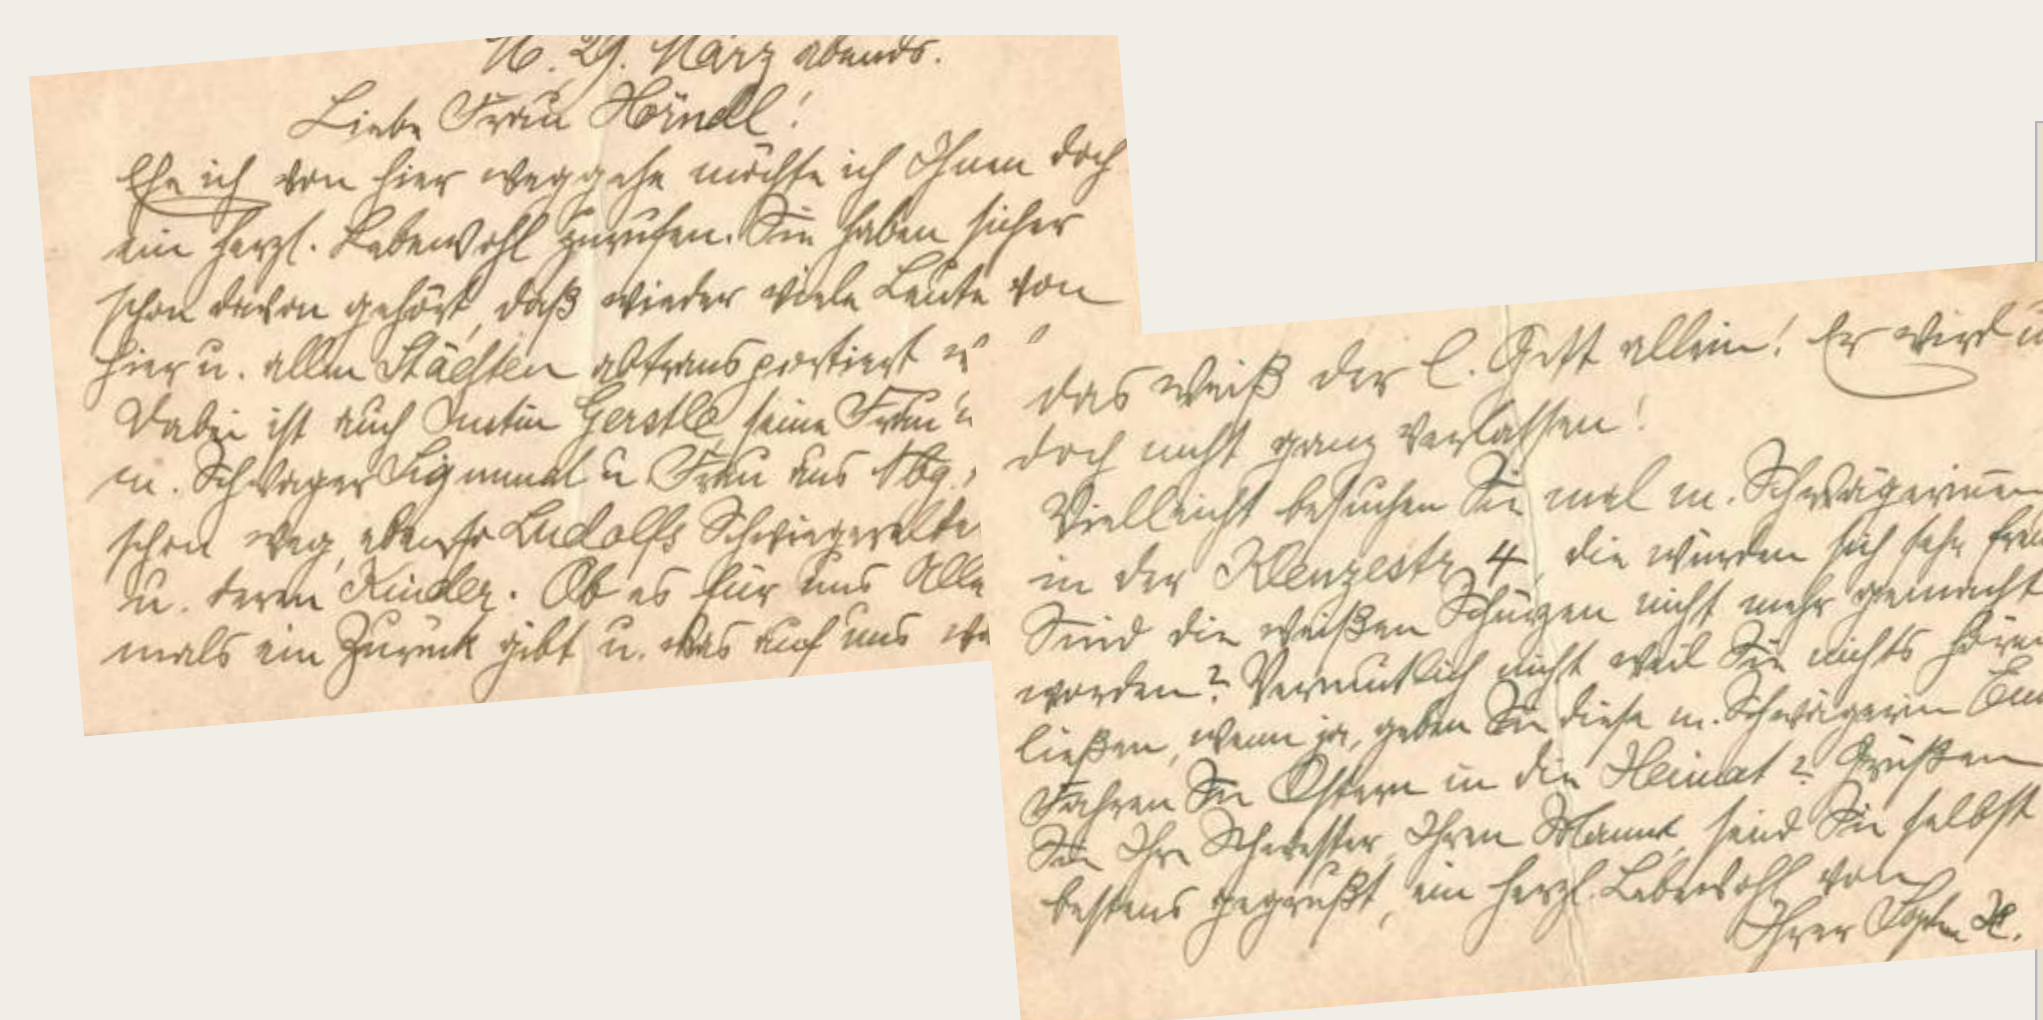 M. 29. März abends.
Liebe Frau Hörndl!
Ehe ich von hier weggehe möchte ich Ihnen doch
ein herzl. Lebewohl zurufen. Sie haben sicher
schon davon gehört, daß wieder viele Leute von
hier u. allen Städten abtransportiert
Dabei ist auch Justin Gerstle, seine Frau u
m. Schwager Sigmund u Frau aus Nbg.
schon weg, ebenso Ludolfs Schwiegerelte
u. deren Kinder. Ob es für uns Alle
mals ein Zurück gibt u. was auf uns wa
das weiß der l. Gott allein! Er wird u
doch nicht ganz verlassen!
Vielleicht besuchen Sie mal m. Schwägerinnen
in der Klenzestr 4, die würden sich sehr freu
Sind die weißen Schürzen nicht mehr gemacht
worden? Vermutlich nicht weil Sie nichts hören
ließen, wenn ja, geben Sie diese m. Schwägerin
Fahren Sie Ostern in die Heimat? Grüßen
Sie Ihre Schwester, Ihren Mann, seid Sie selbst
bestens gegrüßt, ein herzl. Lebewohl von
Ihrer Sophie H.